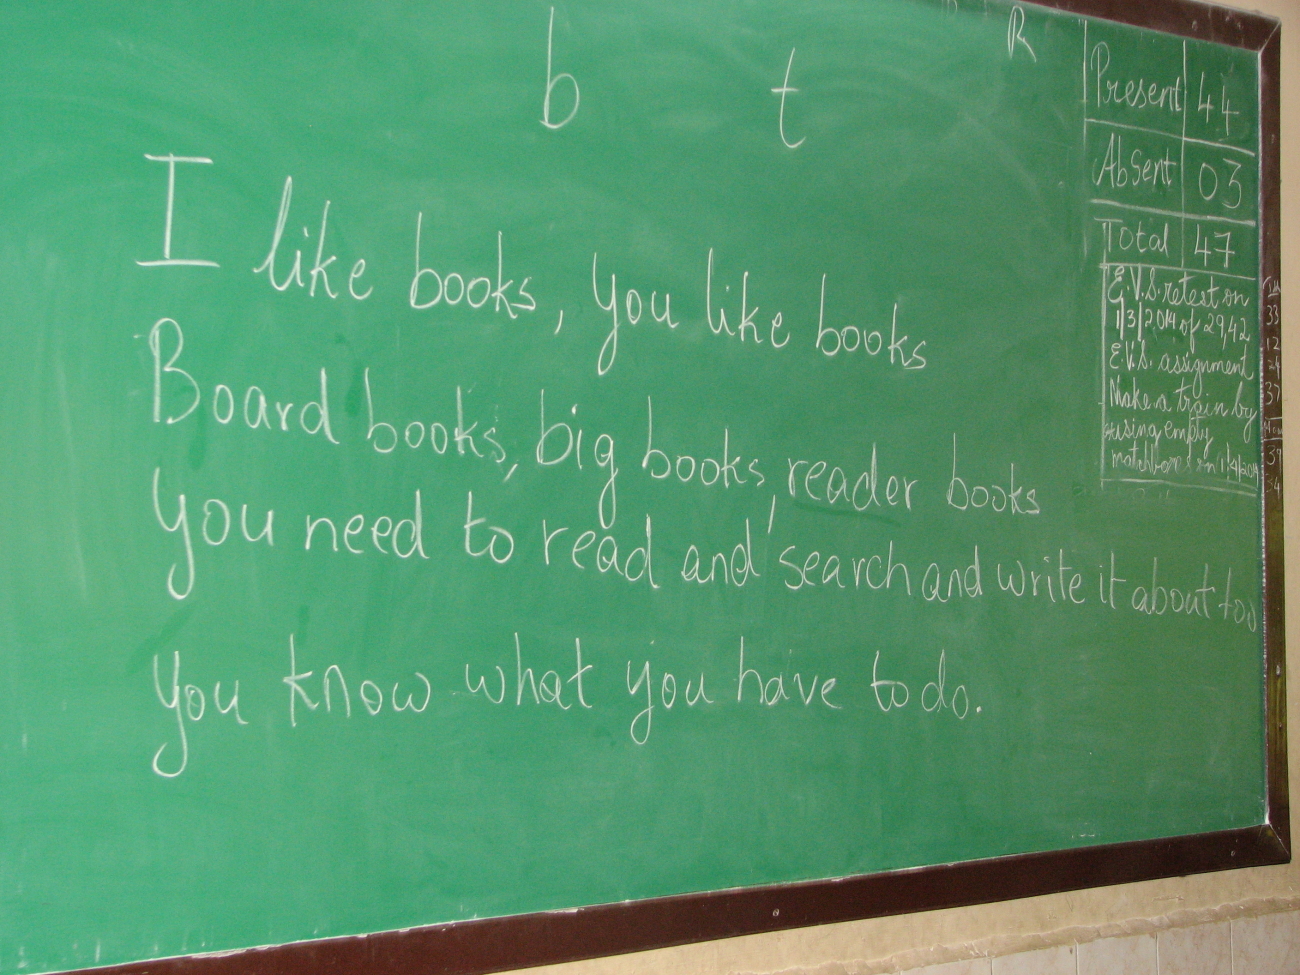 b t R
I like books, you like books
Board books, big books, reader books
you need to read and search and write it about too
you know what you have to do.
Present 44
Absent 03
Total 47
E.V.S. retest on
1/3/2014 of 29,42
E.V.S. assignment
Make a train by
using empty
matchboxes on 1/4/2014
33
12
24
37
39
34